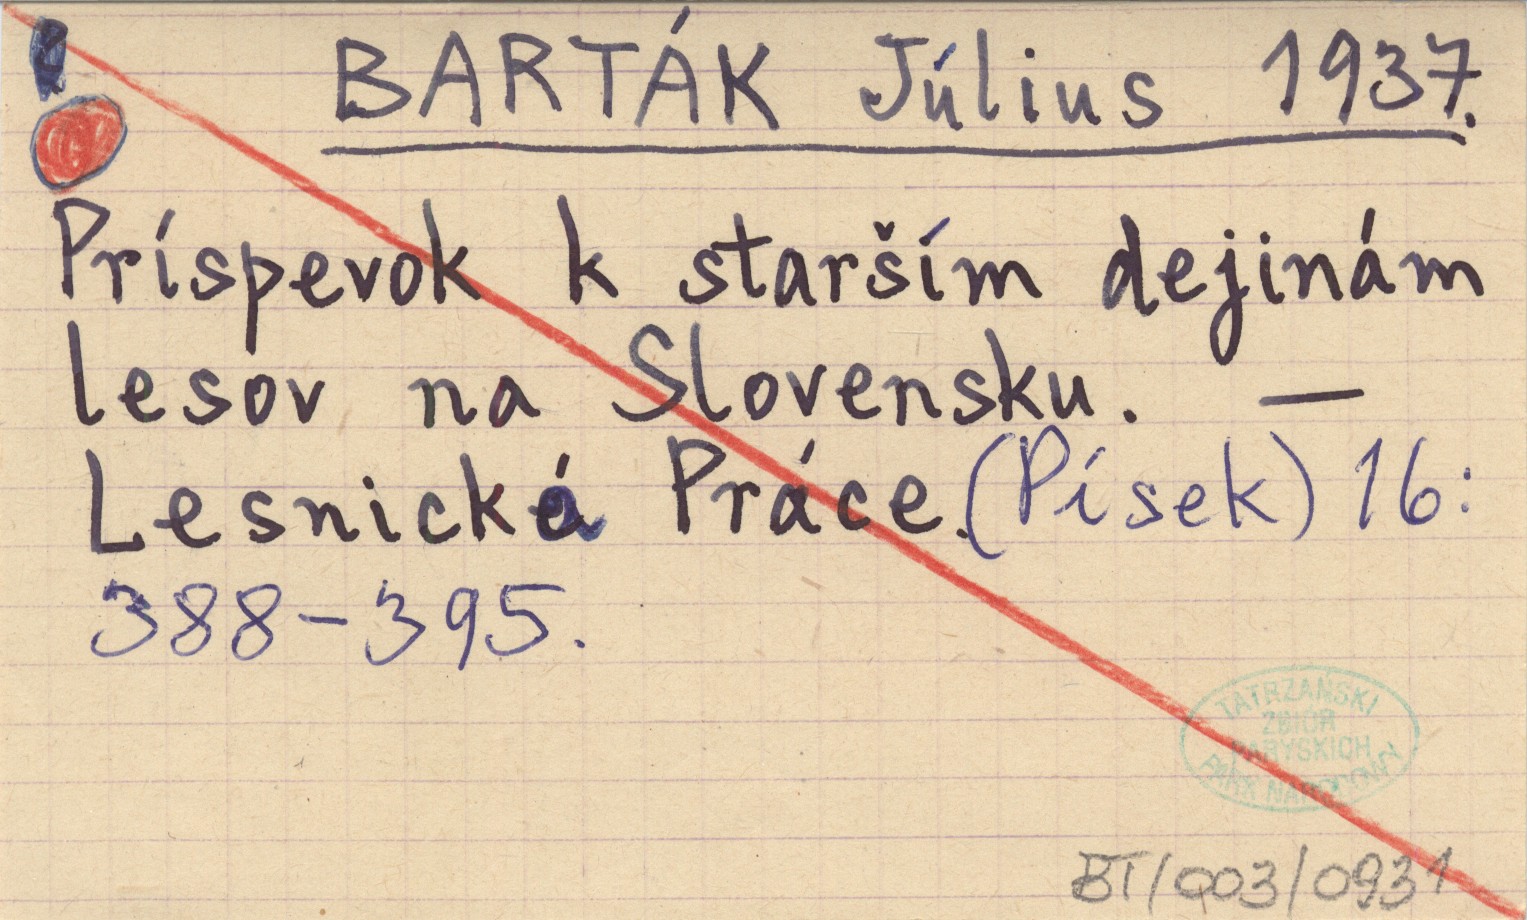 BARTÁK Július 1937.
Príspevok k starším dejinám
lesov na Slovensku. —
Lesnická Práce. (Písek) 16:
388-395.
TATRZAŃSKI
ZBIÓR
PARYSKICH
PARK NARODOWY
BT/003/0931